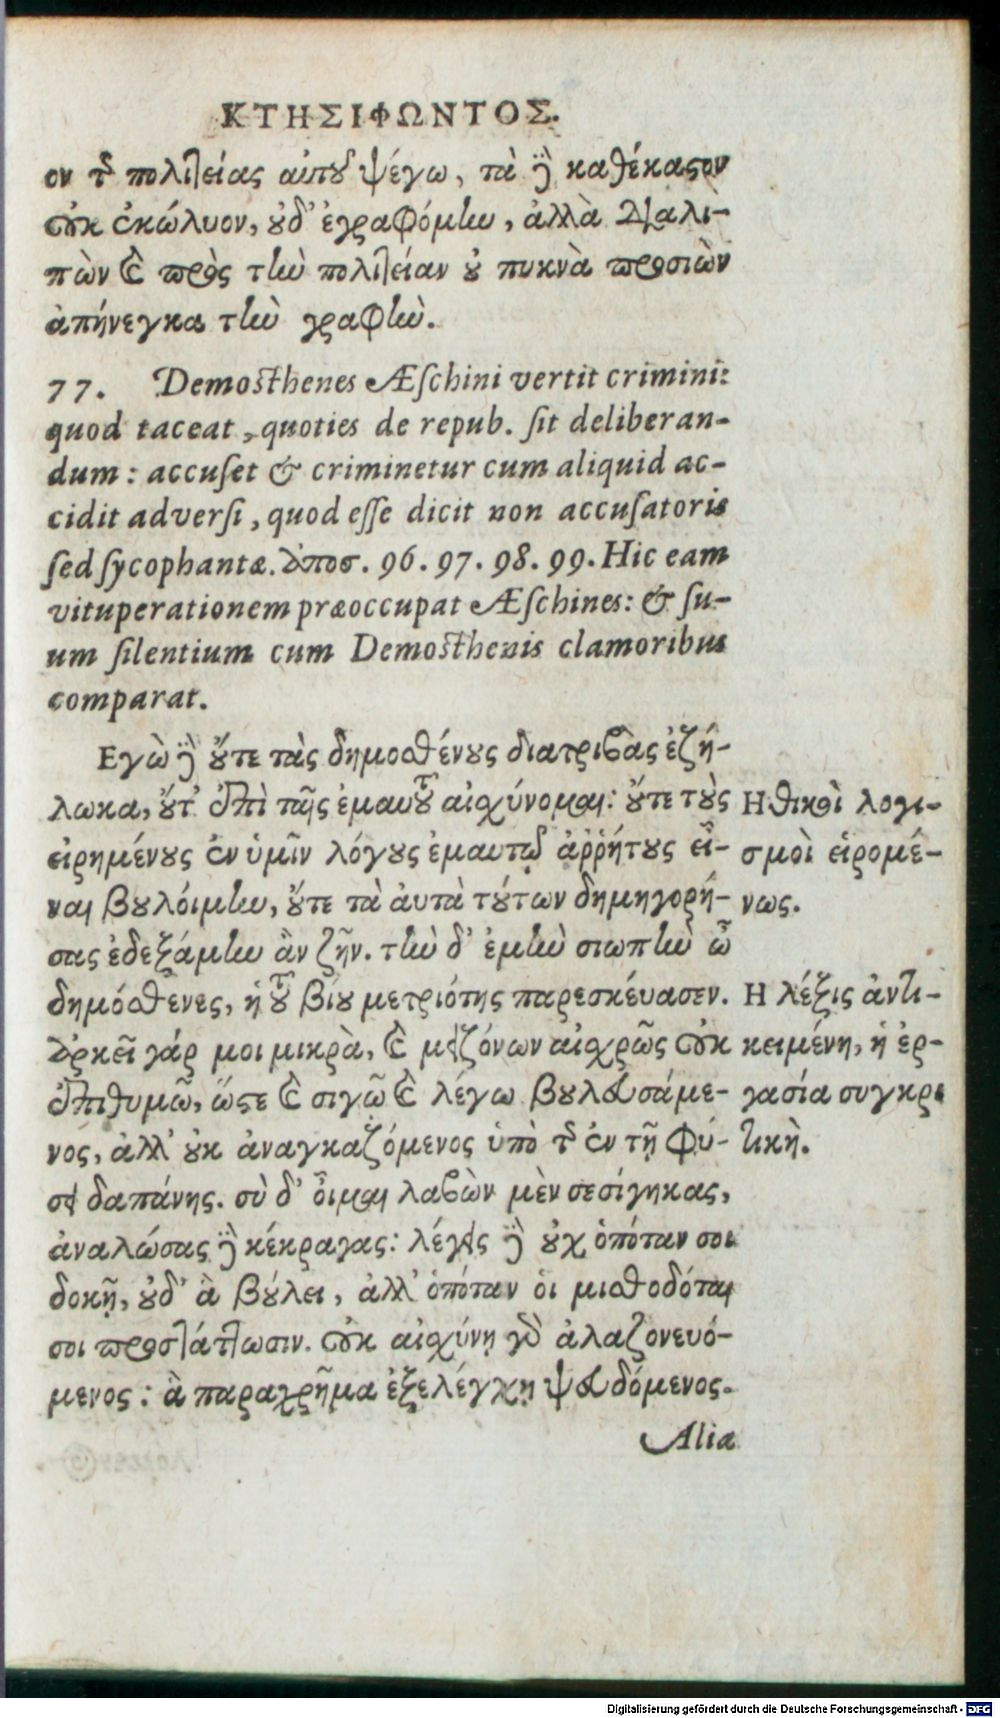 ΚΤΗΣΙΦΩΝΤΟΣ.
ον τῆς πολιτείας αὐτοῦ ψέγω, τὰ δὲ καθέκαστον
οὐκ ἐκώλυον, οὐδ' ἐγραφόμην, ἀλλὰ διαλι-
πὼν καὶ πρὸς τὴν πολιτείαν οὐ πυκνὰ προσιὼν
ἀπήνεγκα τὴν γραφὴν.
77. Demosthenes Æſchini vertit crimini:
quod taceat, quoties de repub. ſit deliberan-
dum: accuſet & criminetur cum aliquid ac-
cidit adverſi, quod eſſe dicit non accuſatoris
ſed ſycophantæ. ἀποσ. 96. 97. 98. 99. Hic eam
vituperationem præoccupat Æſchines: & ſu-
um ſilentium cum Demosthenis clamoribus
comparat.
Εγὼ δὲ οὔτε τὰς δημοσθένους διατριβὰς ἐζή-
λωκα, οὔτ' ἐπὶ ταῖς ἐμαυτοῦ αἰσχύνομαι: οὔτε τοὺς
εἰρημένους ἐν ὑμῖν λόγους ἐμαυτῷ ἀῤῥήτους εἶ-
ναι βουλόιμην, οὔτε τὰ ἀυτὰ τούτων δημηγορή-
σας ἐδεξάμην ἂν ζῆν. τὴν δ' ἐμὴν σιωπὴν ὦ
δημόσθενες, ἡ τοῦ βίου μετριότης παρεσκέυασεν.
ἀρκεῖ γάρ μοι μικρὰ, καὶ μειζόνων αἰσχρῶς οὐκ
ἐπιθυμῶ, ὥστε καὶ σιγῶ καὶ λέγω βουλευσάμε-
νός, ἀλλ' οὐκ ἀναγκαζόμενος ὑπὸ τῆς ἐν τῇ φύ-
σει δαπάνης. σὺ δ' οἶμαι λαβὼν μὲν σεσίγηκας,
ἀναλώσας δὲ κέκραγας: λέγεις δὲ οὐχ ὁπόταν σοι
δοκῇ, οὐδ' ἃ βούλει, ἀλλ' ὁπόταν ὁι μισθοδόται
σοι προστάττωσιν. οὐκ αἰσχύνῃ γδ ἀλαζονευό-
μενος: ἃ παραχρῆμα ἐξελέγχῃ ψευδόμενος.
Alia
Ηθικοὶ λογι-
σμοὶ εἰρομέ-
νως.
Η λέξις ἀντι-
κειμένη, ἡ ἐρ-
γασία συγκρι
τικὴ.
Digitalisierung gefördert durch die Deutsche Forschungsgemeinschaft - DFG